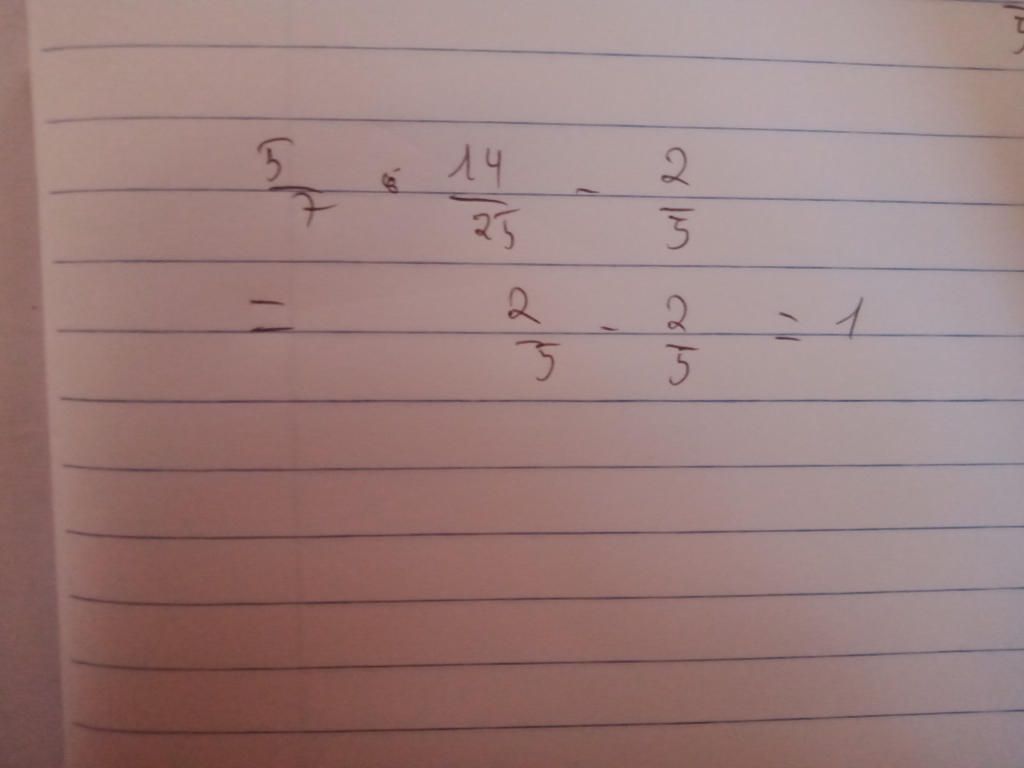 5/7 · 14/25 - 2/5
= 2/5 - 2/5 = 1